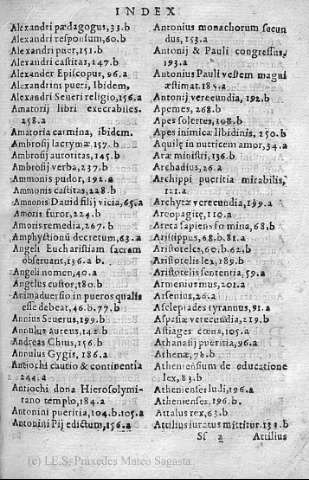 INDEX
Alexandri pædagogus, 33.b
Alexandri responsum, 60.b
Alexandri puer, 151.b
Alexandri castitas, 247.b
Alexander Episcopus, 96.a
Alexandrini pueri, Ibidem,
Alexandri Seueri religio, 156.a
Amatorij libri execrabiles.
258.a
Amatoria carmina, ibidem.
Ambrosij lacrymæ 157.b
Ambrosij autoritas, 145.b
Ambrosij verba, 237.b
Ammonis pudor, 192.a
Ammonis castitas, 228.b
Amnonis Dauid filij vicia, 65.a
Amoris furor, 224.b
Amoris remedia, 267.b
Amphyctionũ decretum, 63.a
Angeli Eucharistiam sacram
obseruant, 136.a b.
Angeli nomen, 40.a
Angelus custor, 180.b
Animaduersio in pueros qualis
esse debeat, 46.b. 77.b
Annius Seuerus, 199.b
Annulus aureus, 142.b
Andreas Chius, 156.b
Annulus Gygis, 186.a
Antiochi cautio & continentia
244.a
Antiochi dona Hierosolymi-
tano templo, 184.a
Antonini pueritia, 104.b. 105.a
Antonini Pij edictum, 156.a
Antonius monachorum secun
dus, 153.a
Antonij & Pauli congressus,
193.a
Antonius Pauli vestem magni
æstimat. 185.a
Antonij verecundia, 192.b
Apemes, 268.b
Apes solertes, 108.b
Apes inimicæ libidinis, 250.b
Aquilę in nutricem amor, 34.a
Aræ ministri, 136.b
Archadius, 26.a
Archippi pueritia mirabilis,
121.a
Archytæ verecundia, 199.a
Areopagite, 110.a
Areta sapiens fœmina, 68.b
Aristippus, 68.b. 81.a
Aristoteles, 60.b. 62.b
Aristotelis lex, 189.b
Aristotelis sententia, 59.a
Armenius mus, 201.a
Arsenius, 26.a
Asclepiades tyrannus, 91.a
Aspasiæ verecundia, 219.b
Astiages cœna, 105.a
Athanasij pueritia, 96.a
Athenæ, 76.b
Atheniensium de educatione
lex, 83.b
Atheniensis ludi, 196.a
Athenienses, 196.b
Attalus rex, 63.b
Attilius iuratus mittitur. 133.b
Ss 2 Attilius
(c) I.E.S. Práxedes Mateo Sagasta